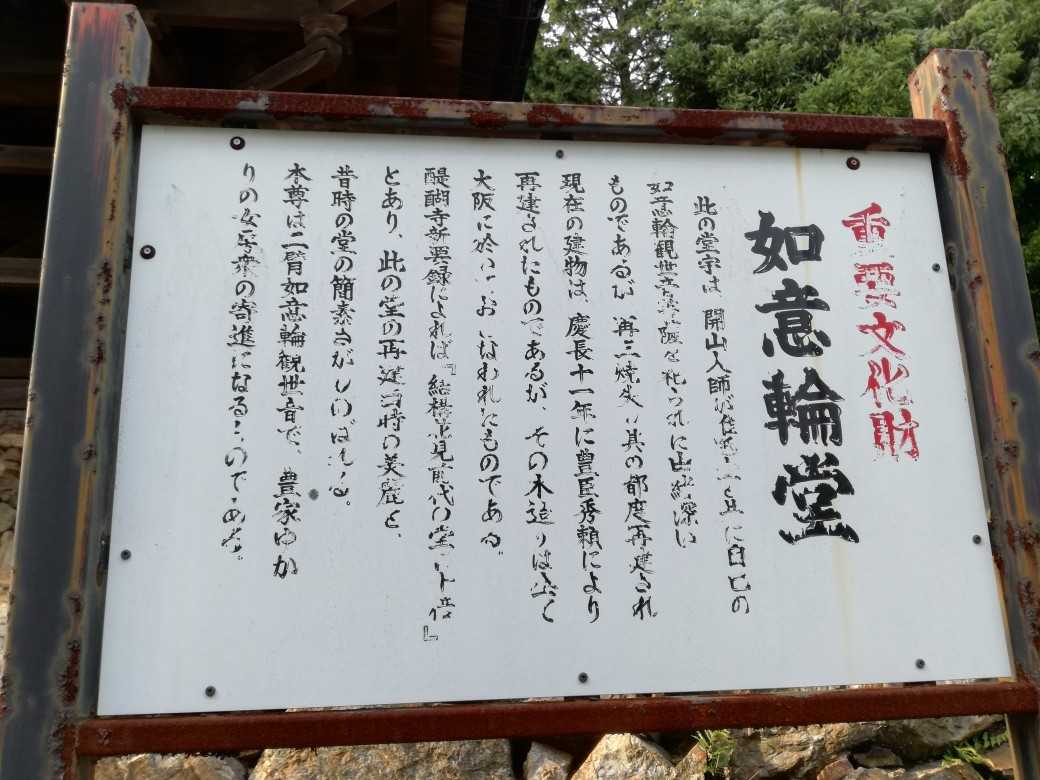 重要文化財
如意輪堂
此の堂宇は、開山人師が に自己の
如意輪観世音 られた由緒深い
ものであるが、再三焼失 其の都度再建され
現在の建物は、慶長十一年に豊臣秀頼により
再建されたものであるが、その木造りは全て
大阪に於いて、おこなわれたものである。
醍醐寺新要録によれば『結構 見前代の堂 倍』
とあり、此の堂の再建当時の美麗と、
昔時の堂の簡素さがしのばれる。
本尊は二臂如意輪観世音で、豊家ゆか
りの女房衆の寄進になるものである。